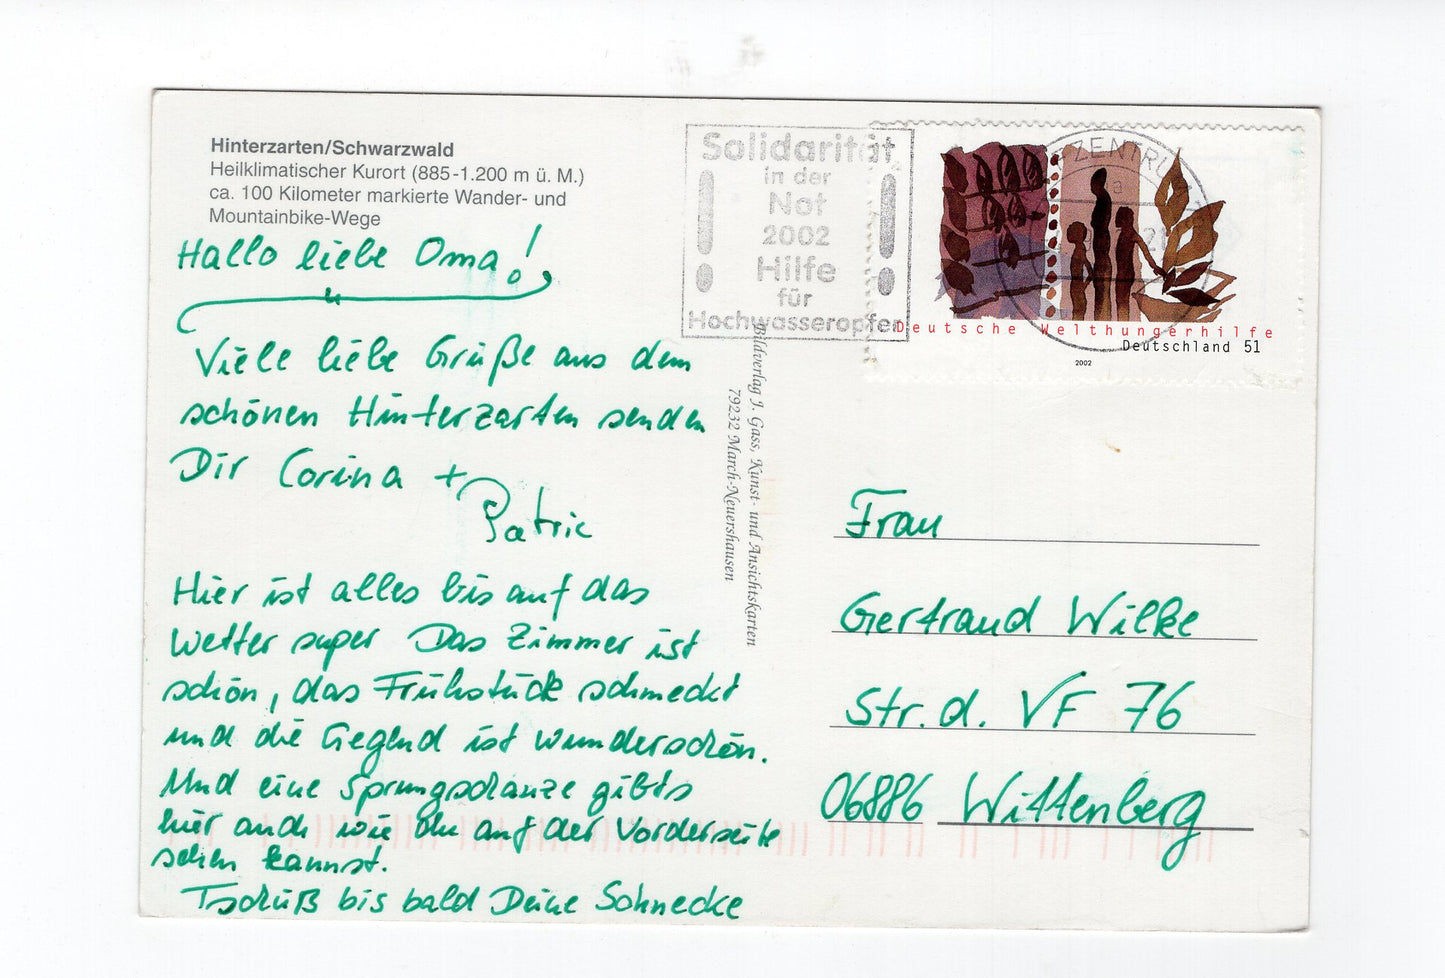 Hinterzarten/Schwarzwald
Heilklimatischer Kurort (885-1.200 m ü. M.)
ca. 100 Kilometer markierte Wander- und
Mountainbike-Wege
Hallo liebe Oma!
Viele liebe Grüße aus dem
schönen Hinterzarten senden
Dir Corina +
Patric
Hier ist alles bis auf das
Wetter super Das Zimmer ist
schön, das Frühstück schmeckt
und die Gegend ist wunderschön.
Und eine Sprungschanze gibts
hier auch wie Du auf der Vorderseite
sehen kannst.
Tschüß bis bald Deine Schnecke
Bildverlag J. Gass, Kunst- und Ansichtskarten
79232 March-Neuershausen
Solidarität
in der
Not
2002
Hilfe
für
Hochwasseropfer
ZENTRUM
a
Deutsche Welthungerhilfe
Deutschland 51
2002
Frau
Gertraud Wilke
Str. d. VF 76
06886 Wittenberg